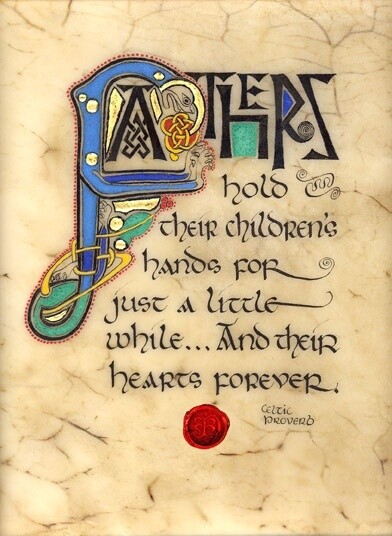 FATHERS
hold
their children's
hands for
just a little
while... And their
hearts forever.
Celtic
Proverb